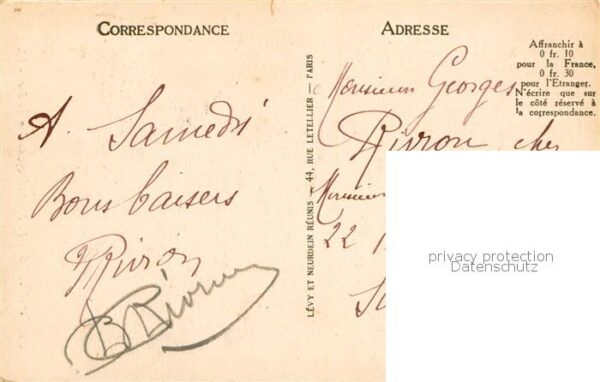 CORRESPONDANCE
A Samedi
Bons baisers
Rivron
B Rivron
LÉVY ET NEURDEIN RÉUNIS — 44, RUE LETELLIER — PARIS
ADRESSE
Affranchir à
0 fr. 10
pour la France,
0 fr. 30
pour l'Etranger.
N'écrire que sur
le côté réservé à
la correspondance.
Monsieur Georges
Rivron chez
Monsieur
22
privacy protection
Datenschutz